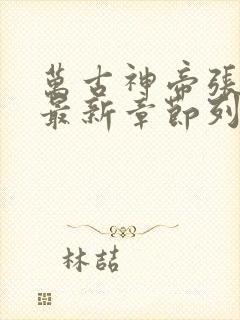 萬古神帝張
最新章節列
林喆